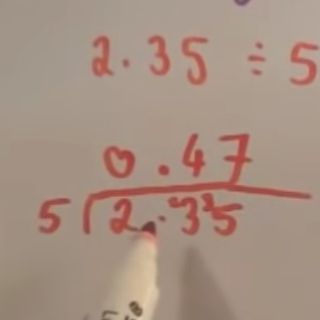 2.35 ÷ 5
0.47
5 2.²3³5